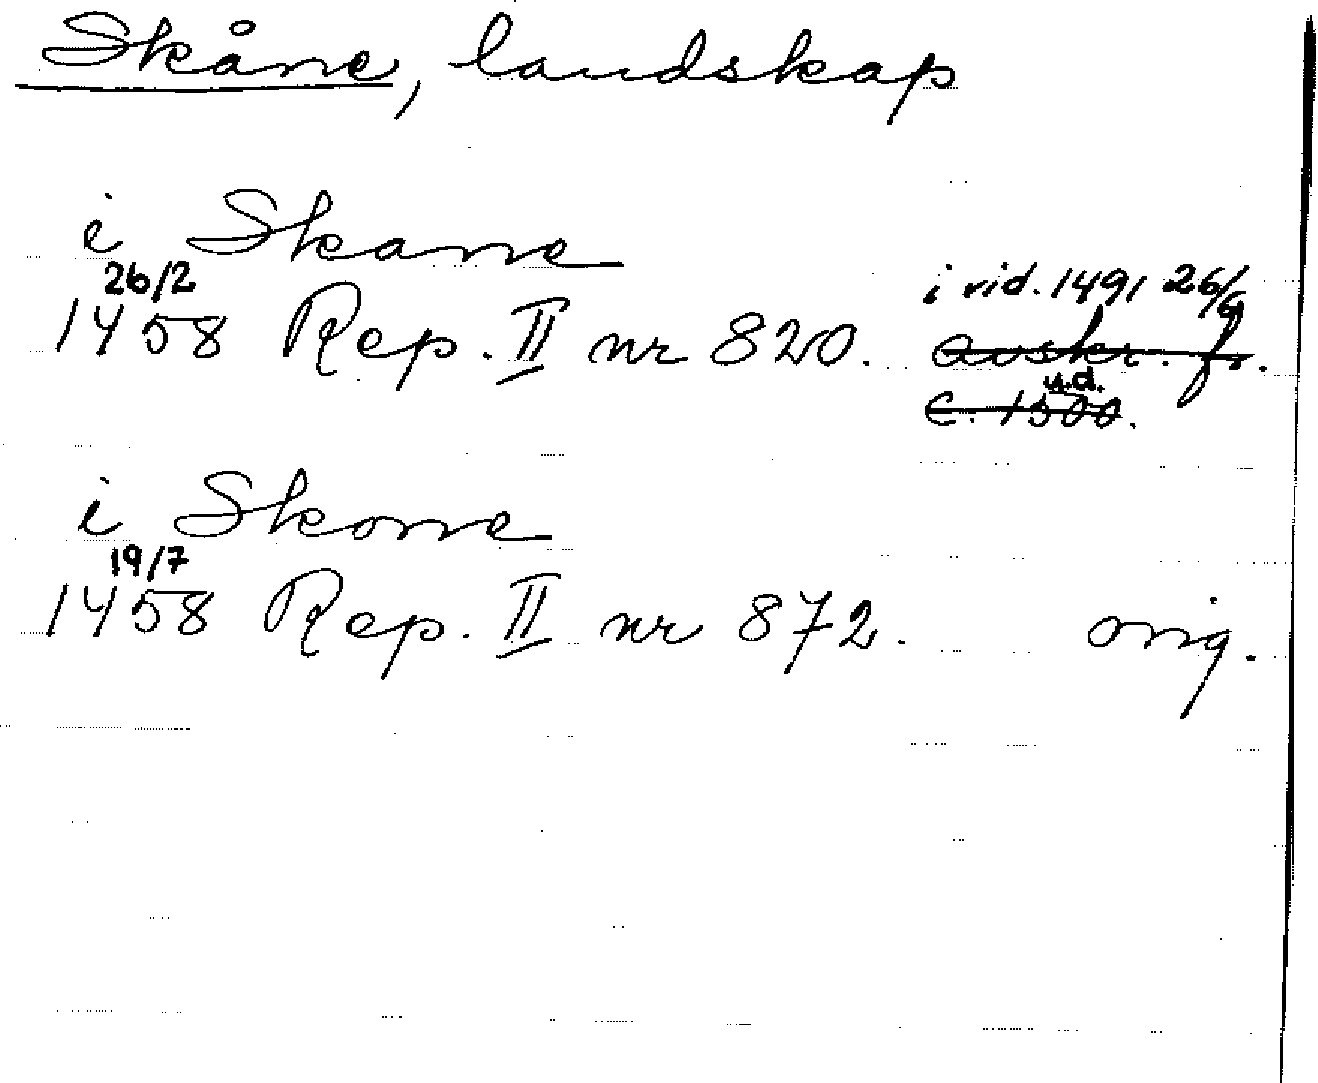 Skåne, landskap
i Skane
26/2
i vid. 1491 26/9
1458 Rep. II nr 820. avskr. fr.
u.d.
c. 1500.
i Skone
19/7
1458 Rep. II nr 872. orig.